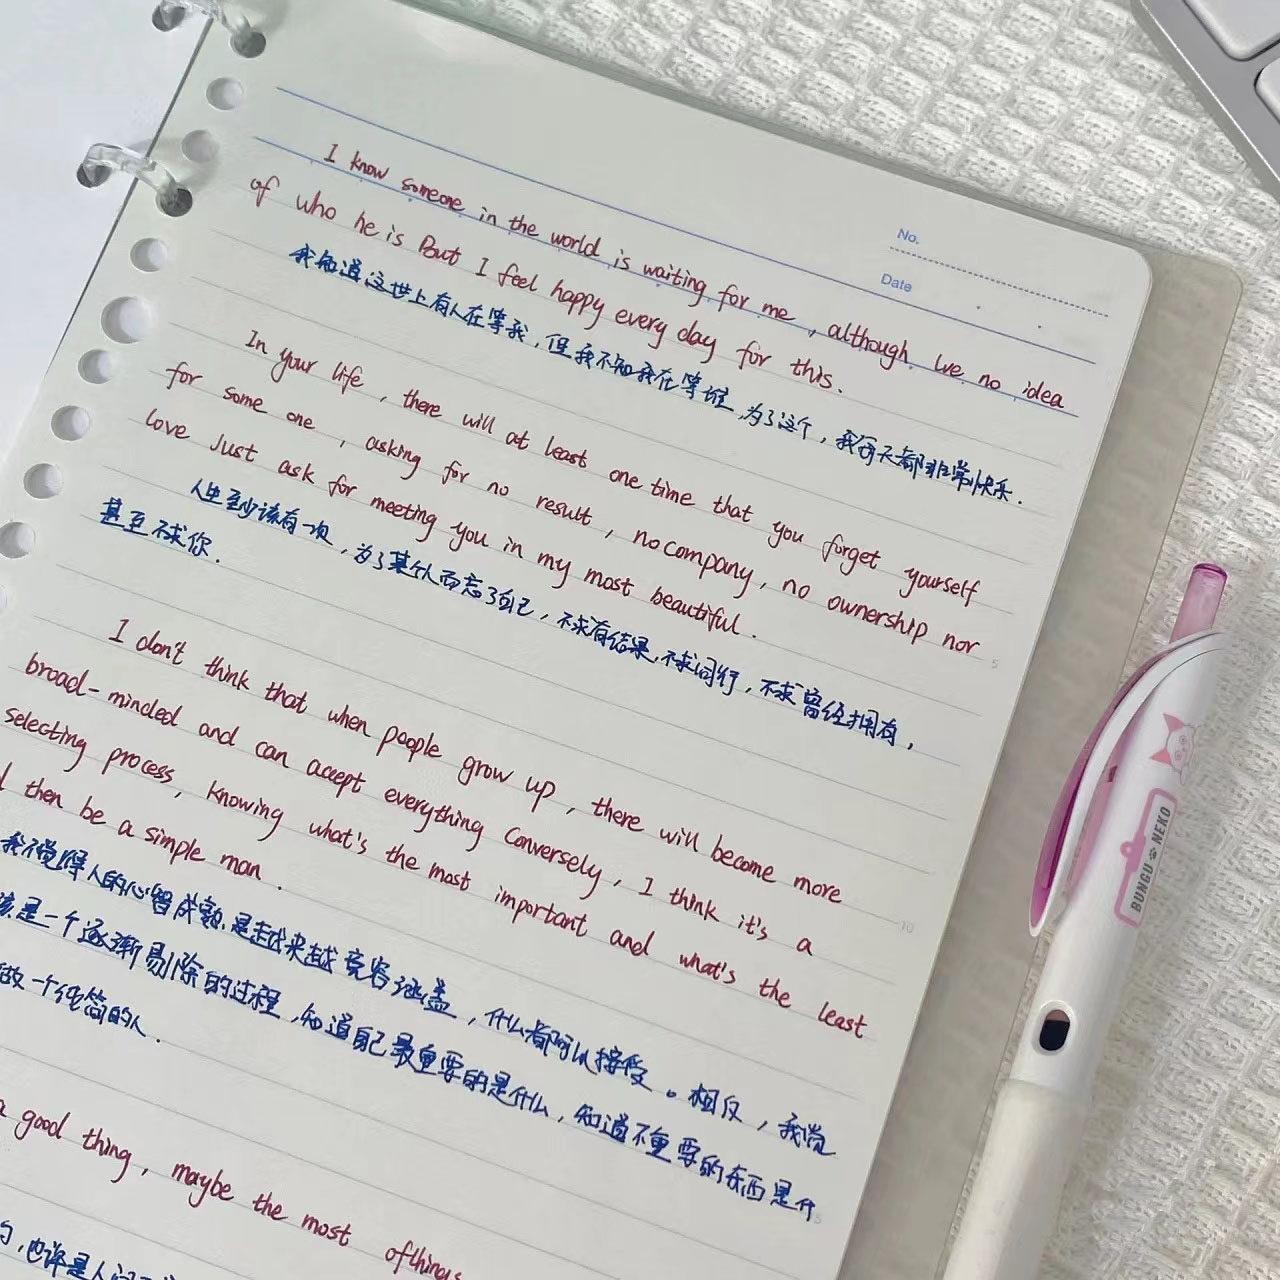 No.
Date
I know someone in the world is waiting for me, although I've no idea
of who he is But I feel happy every day for this.
我知道这世上有人在等我，但我不知我在等谁，为了这个，我每天都非常快乐.
In your life, there will at least one time that you forget yourself
for some one, asking for no result, no company, no ownership nor
love Just ask for meeting you in my most beautiful.
人生至少该有一次，为了某个人而忘了自己，不求有结果，不求同行，不求曾经拥有，
甚至不求你.
I don't think that when people grow up, there will become more
broad-minded and can accept everything Conversely, I think it's a
selecting process, knowing what's the most important and what's the least
then be a simple man.
我不觉得人的心智成熟是越来越宽容涵盖，什么都可以接受。相反，我觉
该是一个逐渐剔除的过程，知道自己最重要的是什么，知道不重要的东西是什
做一个纯简的人.
a good thing, maybe the most of things
，也许是人间
5
10
15
BUNGU NEKO